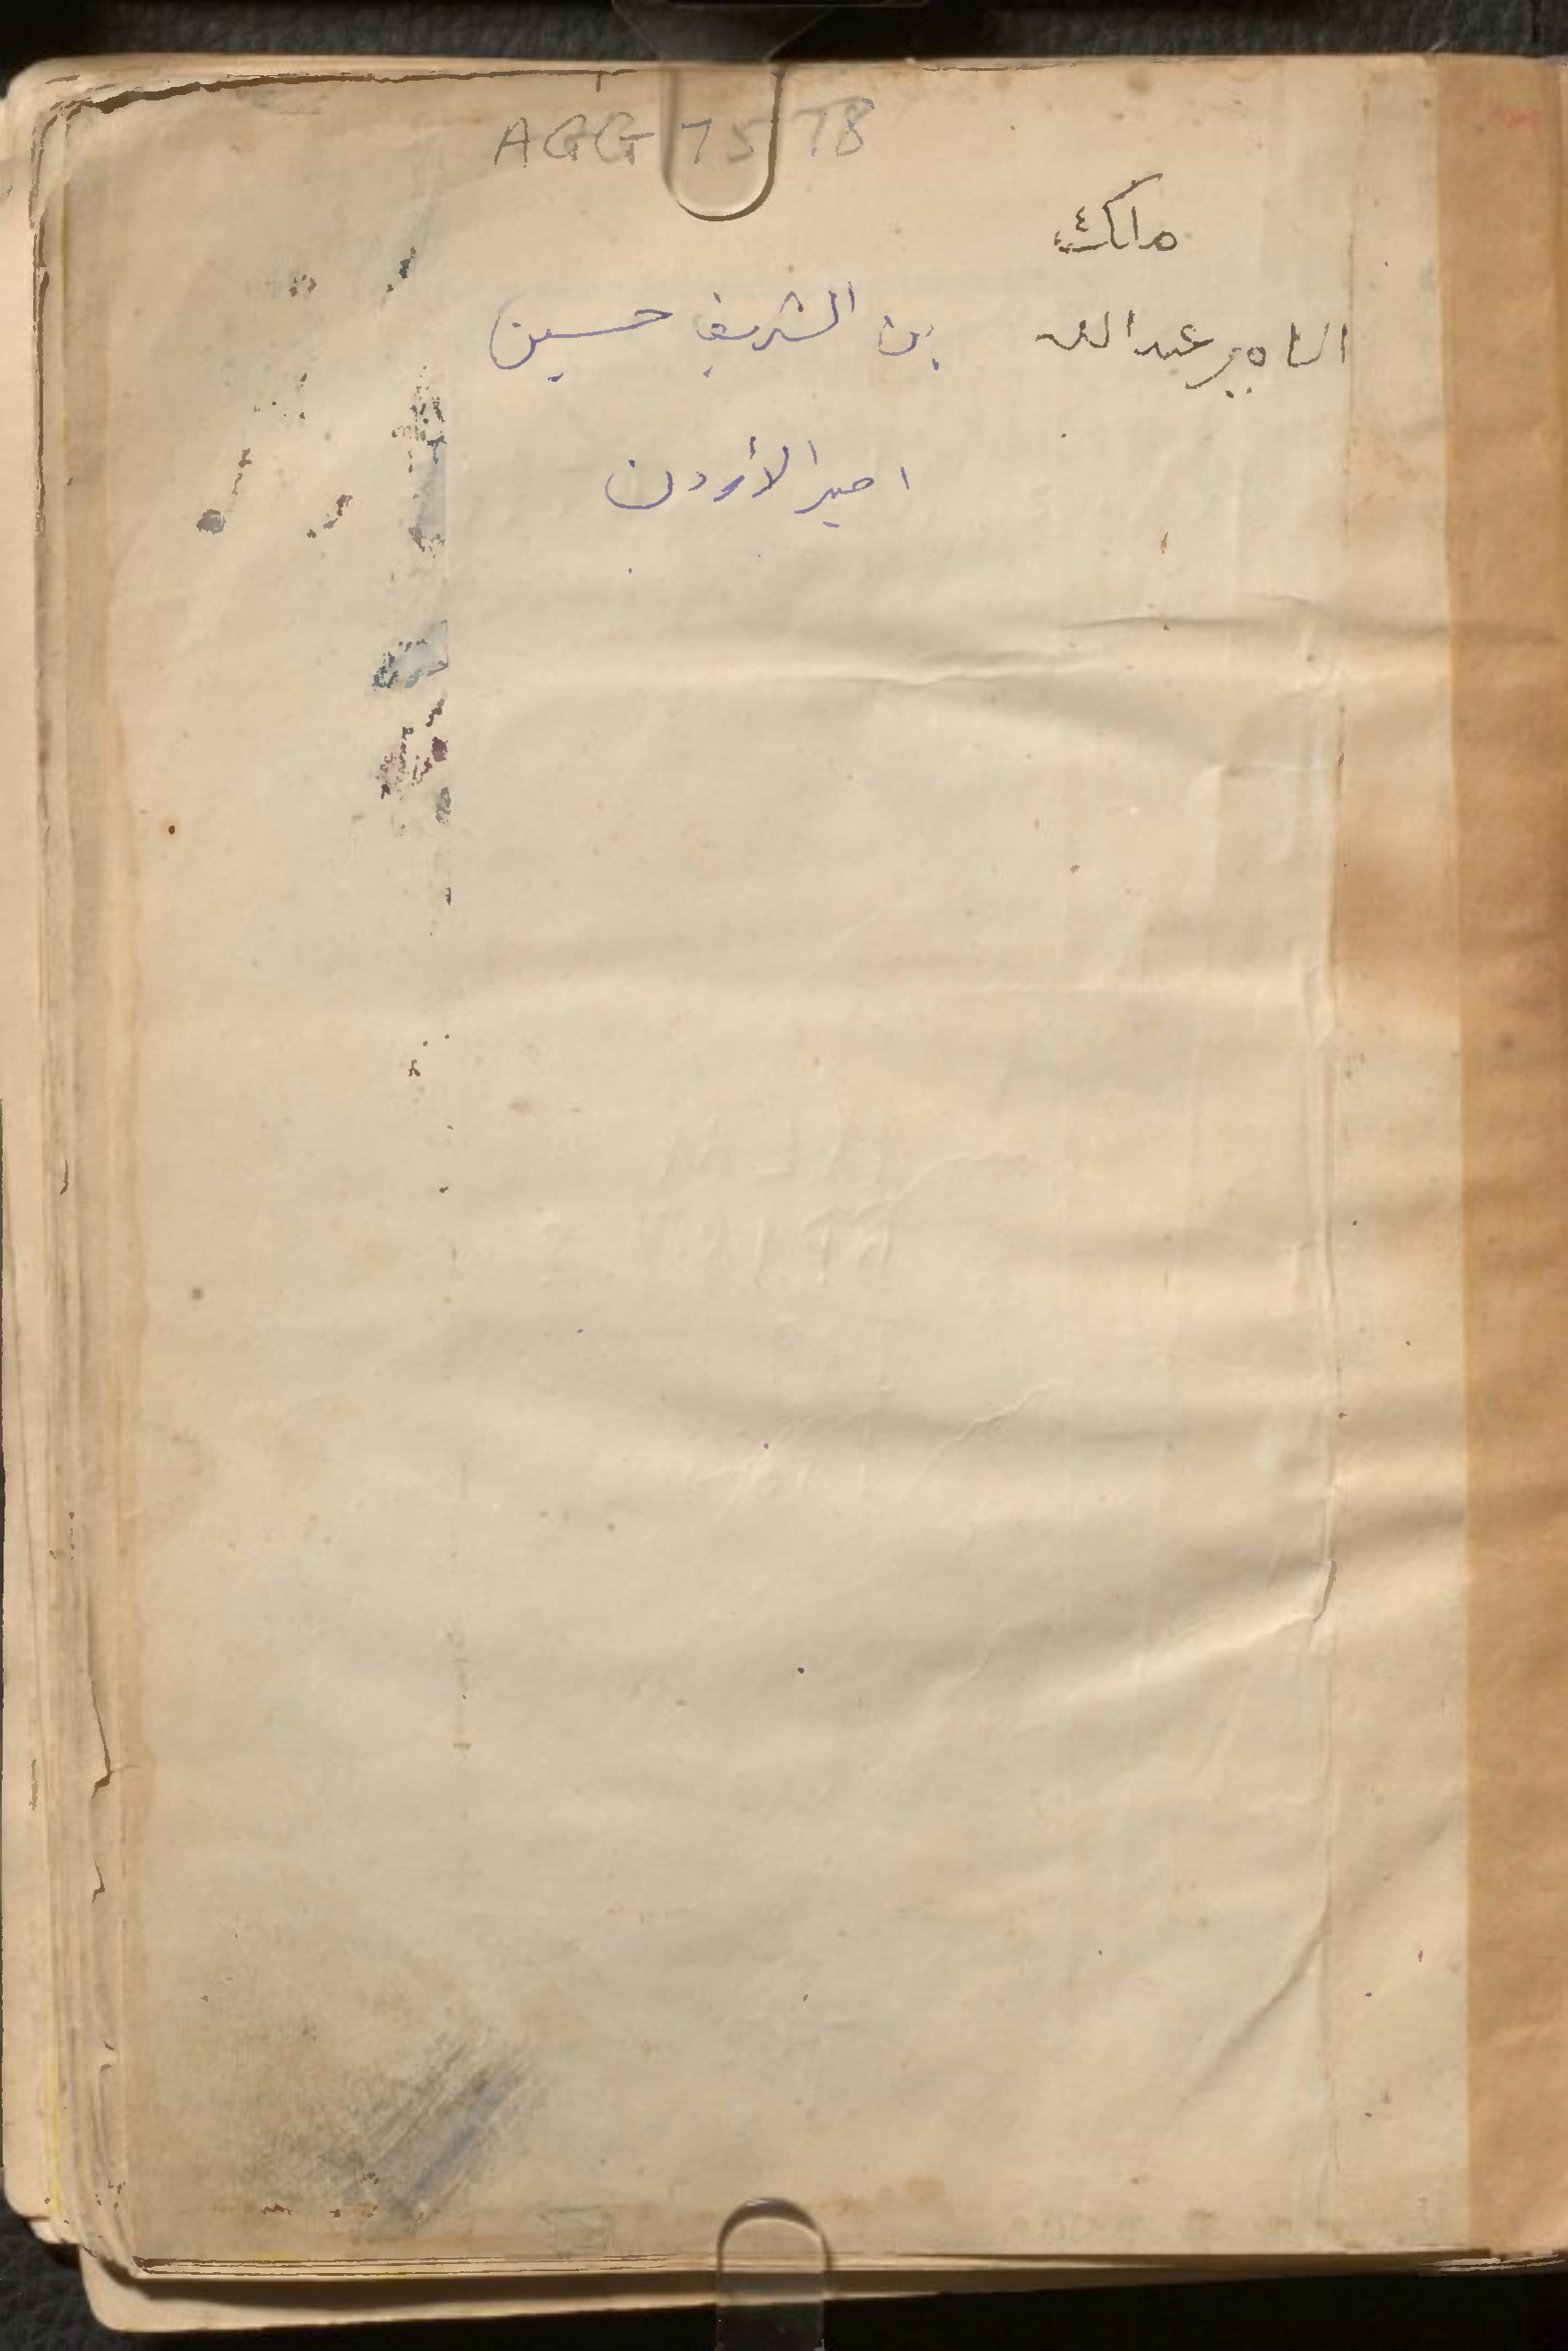 AGG 7578
مالك
الامير عبدالله بن الشريف حسين
امير الأردن